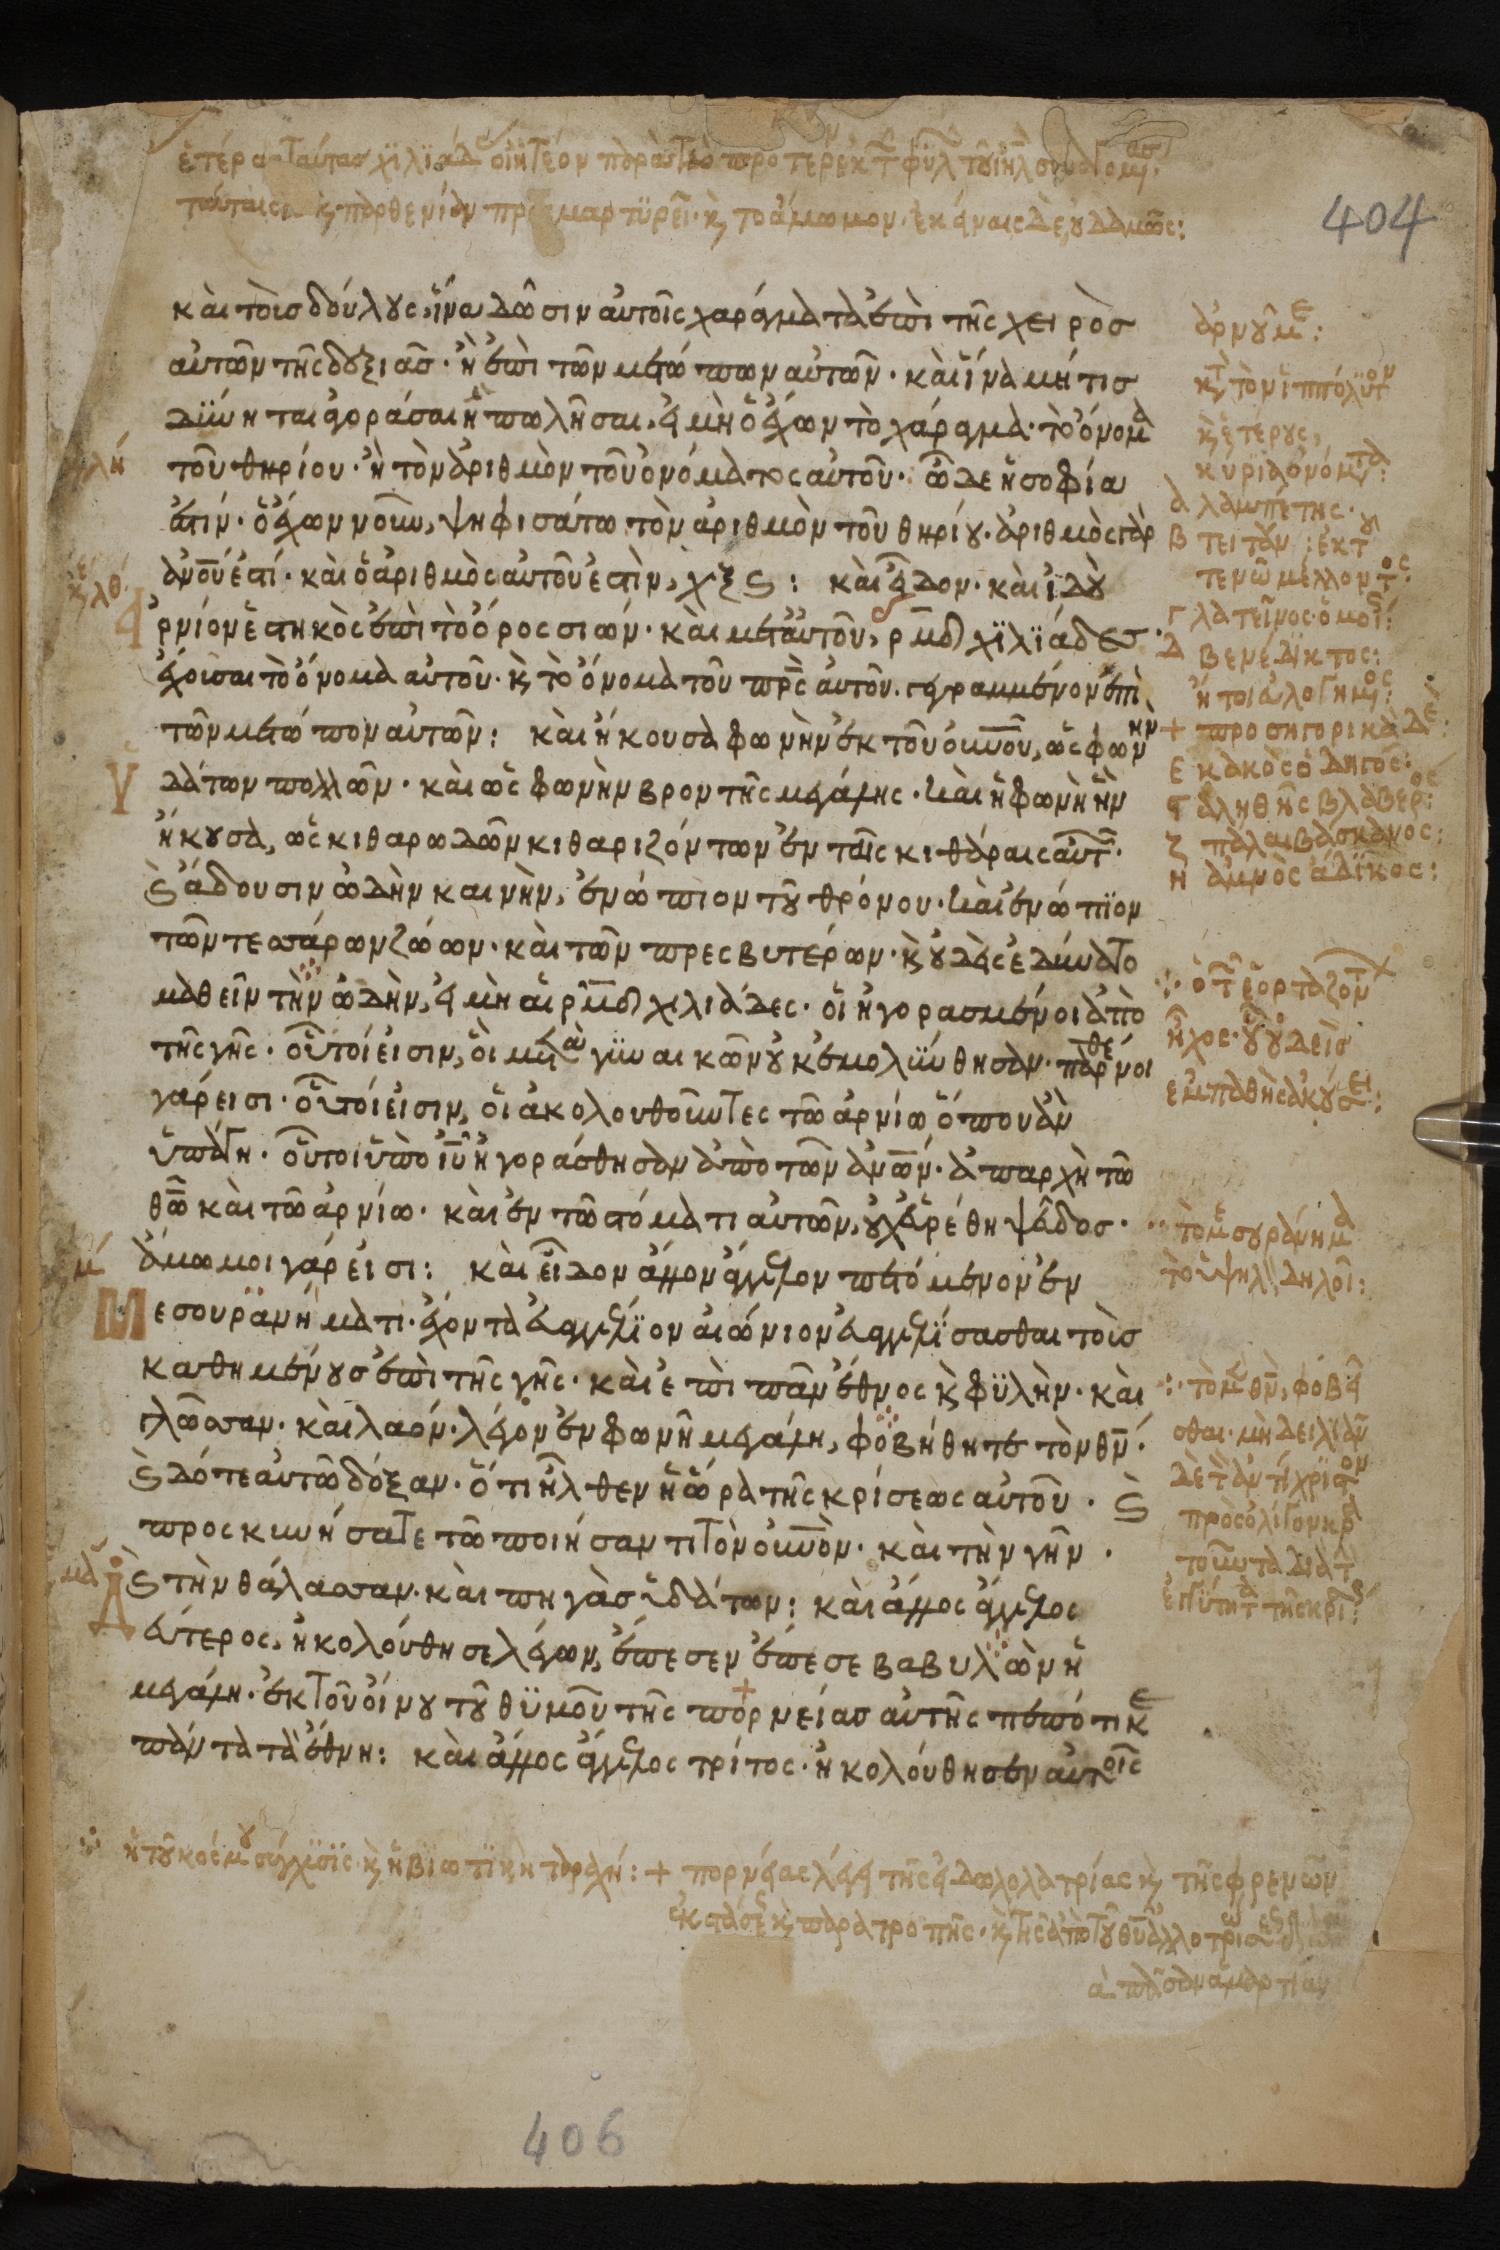 ἑτέρας ταύτας χϊλϊάδ οἰητέον παρὰ τὰς προτερ ἐκ τ φϋλ τοῦ ιηλ
ταύταις κ παρθενίαν προσμαρτϋρεῖ· κ τὸ ἄμωμον· ἐκείναις δὲ οὐδαμῶς:
404
καὶ τοῖς δούλους, ἵνα δῶσιν αὐτοῖς χαράγματα ἐπὶ τῆς χειρὸς
αὐτῶν τῆς δεξιᾶς· ἢ ἐπὶ τῶν μετώπων αὐτῶν· καὶ ἵνα μή τις
δϋνηται ἀγοράσαι ἢ πωλῆσαι, εἰ μὴ ὁ ἔχων τὸ χάραγμα· τὸ ὄνομα
τοῦ θηρίου· ἢ τὸν ἀριθμὸν τοῦ ὀνόματος αὐτοῦ· ὧδε ἡ σοφία
ἐστίν· ὁ ἔχων νοῦν, ψηφισάτω τὸν ἀριθμὸν τοῦ θηρίου· ἀριθμὸς γὰρ
ἀνου ἐστί· καὶ ὁ ἀριθμὸς αὐτοῦ ἐστὶν, χξς: καὶ εἶδον· καὶ ἰδοὺ
ἀρνίον ἑστηκὸς ἐπὶ τὸ ὄρος σιών· καὶ μετ αὐτοῦ, ρμδ χϊλϊάδες·
ἔχουσαι τὸ ὄνομα αὐτοῦ· κ τὸ ὄνομα τοῦ πρς αὐτοῦ. γεγραμμένον ἐπὶ
τῶν μετώπων αὐτῶν: καὶ ἤκουσα φωνὴν ἐκ τοῦ οὐνου, ὡς φωνὴν
ὑδάτων πολλῶν· καὶ ὡς φωνὴν βροντῆς μεγάλης· καὶ ἡ φωνὴ ἣν
ἤκουσα, ὡς κιθαρωδῶν κιθαριζόντων ἐν ταῖς κιθάραις αὐτ·
κ ἄδουσιν ὠδὴν καινὴν, ἐνώπιον τοῦ θρόνου· καὶ ἐνώπϊον
τῶν τεσσάρων ζώων· καὶ τῶν πρεσβυτέρων· κ οὐδεὶς ἐδύνατο
μαθεῖν τὴν ὠδὴν, εἰ μὴ αἱ ρμδ χιλιάδες· οἱ ἠγορασμένοι ἀπὸ
τῆς γῆς· οὗτοί εἰσιν, οἱ μετὰ γϋναικῶν οὐκ ἐμολϋνθησαν· παρθένοι
γάρ εἰσι· οὗτοί εἰσιν, οἱ ἀκολουθοῦντες τῶ ἀρνίω ὅπου ἂν
ὑπάγη· οὗτοι ὑπὸ ιυ ἠγοράσθησαν ἀπὸ τῶν ἀνων· ἀπαρχὴ τῶ
θω καὶ τῶ ἀρνίω· καὶ ἐν τῶ στόματι αὐτῶν, οὐχ εὑρέθη ψεῦδος·
ἄμωμοι γάρ εἰσι: καὶ εἶδον ἄλλον ἄγγελον πετόμενον ἐν
μεσουρανήματι· ἔχοντα εὐαγγέλϊον αἰώνιον εὐαγγελϊσασθαι τοῖς
καθημένους ἐπὶ τῆς γῆς· καὶ ἐπὶ πᾶν ἔθνος κ φϋλὴν· καὶ
γλῶσσαν· καὶ λαόν· λέγον ἐν φωνῆ μεγάλη, φοβήθητε τὸν θν·
κ δότε αὐτῶ δόξαν· ὅτι ἦλθεν ἡ ὥρα τῆς κρίσεως αὐτοῦ· κ
προσκυνήσατε τῶ ποιήσαντι τὸν οὐνον· καὶ τὴν γῆν·
κ τὴν θάλασσαν· καὶ πηγὰς ὑδάτων: καὶ ἄλλος ἄγγελος
δεύτερος, ἠκολούθησε λέγων, ἔπεσεν ἔπεσε βαβυλὼν ἡ
μεγάλη· ἐκ τοῦ οἴνου τοῦ θϋμοῦ τῆς πορνείας αὐτῆς πεπότικε
πάντα τὰ ἔθνη: καὶ ἄλλος ἄγγελος τρίτος· ἠκολούθησεν αὐτοῖς
λή
κ λθ
μ
μα
ἀρνουμε:
κτ τὸν ἱππόλϋτον
κ ἑτέρους,
κύρια ὀνόματα:
α λαμπέτης·
β τειτάν: ἐκ τοῦ
τενῶ μέλλοντος:
γ λατεῖνος· ὁμοί:
δ βενέδϊκτος:
ἤτοι εὐλογημος:
+ προσηγορικὰ δε:
ε κακὸς ὁδηγός·
ς ἀληθὴς βλαβερος:
ζ πάλαι βάσκανος:
η ἀμνὸς ἄδϊκος:
ἦχος· οὐδεὶς
ἐμπαθὴς ἀκούσει:
τὸ μεσουράνημα
τὸ ὑψηλ, δηλοῖ:
τὸν μ θν, φοβεῖ
σθαι· μὴ δειλιᾶν
δὲ τὸν ἀντίχρϊστον
πρὸς ὀλίγον κρα
τοῦντα διὰ τ
ἐγγύτητα τῆς κρίσε:
ἡ τοῦ κόσμου σύγχϋσϊς· κ ἡ βϊωτϊκὴ ταραχή: + πορνείας λέγει τῆς εἰδωλολατρίας κ τῆς φρενῶν
ἐκστάσε κ παρατροπῆς· κ τῆς ἀπὸ τοῦ θυ ἀλλοτριώσεως
πᾶσαν ἁμαρτίαν
406